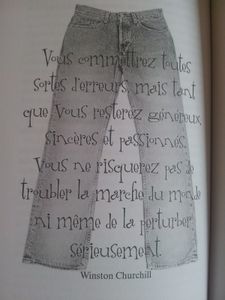 Vous commettrez toutes
sortes d'erreurs, mais tant
que vous resterez généreux,
sincères et passionnés.
Vous ne risquerez pas de
troubler la marche du monde
ni même de la perturber
sérieusement.
Winston Churchill